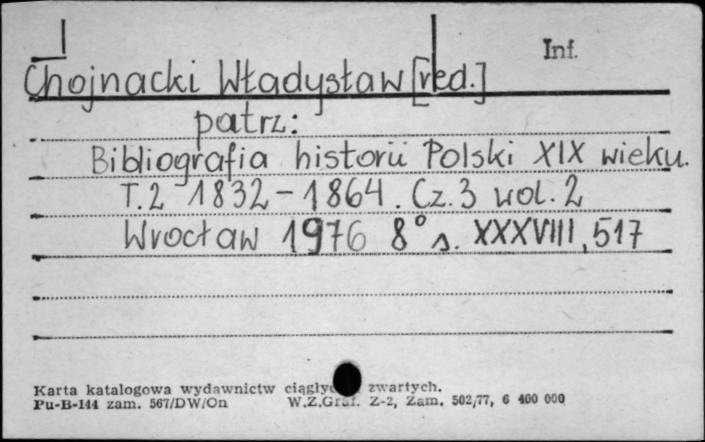 Inf.
Chojnacki Władysław [red.]
patrz:
Bibliografia historii Polski XIX wieku.
T.2 1832-1864. Cz.3 wol. 2
Wrocław 1976 8° s. XXXVIII, 517
Karta katalogowa wydawnictw zwartych.
Pu-B-144 zam. 567/DW/On W.Z.Graf. Z-2, Zam. 502/77, 6 400 000